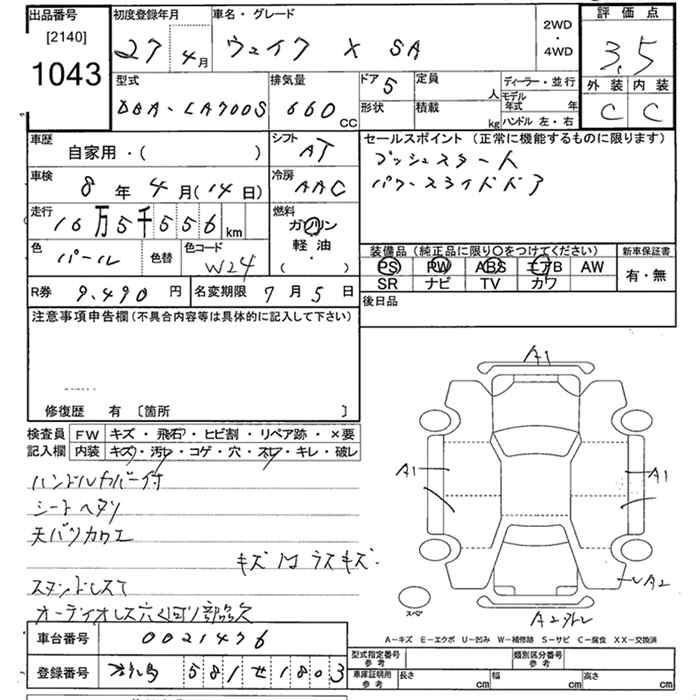 出品番号
[2140]
1043
初度登録年月
27 4月
車名・グレード
ウェイク X SA
2WD
・
4WD
評価点
3.5
外装 内装
C C
型式
DBA-LA700S
排気量
660 CC
ドア 5
形状
定員 人
積載 kg
ディーラー・並行
モデル
年式 年
ハンドル 左・右
車歴
自家用・( )
シフト
AT
車検
8年4月(14日)
冷房
AAC
走行
16万5千556km
燃料
ガソリン
軽油
( ・ )
色
パール
色替
色コード
W24
R券 9.490円
名変期限 7月5日
セールスポイント (正常に機能するものに限ります)
プッシュスタート
パワースライドドア
装備品(純正品に限り〇をつけてください)
新車保証書
PS PW ABS エアB AW
SR ナビ TV カワ
有・無
後日品
注意事項申告欄(不具合内容等は具体的に記入して下さい)
修復歴 有 〔箇所 〕
検査員 FW キズ・飛石・ヒビ割・リペア跡・×要
記入欄 内装 キズ・汚レ・コゲ・穴・スレ・キレ・破レ
ハンドルカバー付
シートヘタリ
天バリカワエ
キズ 凹 ラスキズ.
スタンドレスて
オーディオレス穴 回り部品欠
A1
A1
A1
A2
A2
スペア
A-キズ E-エクボ U-凹み W-補修跡 S-サビ C-腐食 XX-交換済
車台番号 0021476
登録番号 581せ1803
型式指定番号
参考
類別区分番号
参考
車庫証明用
参考
長さ cm
幅 cm
高さ cm